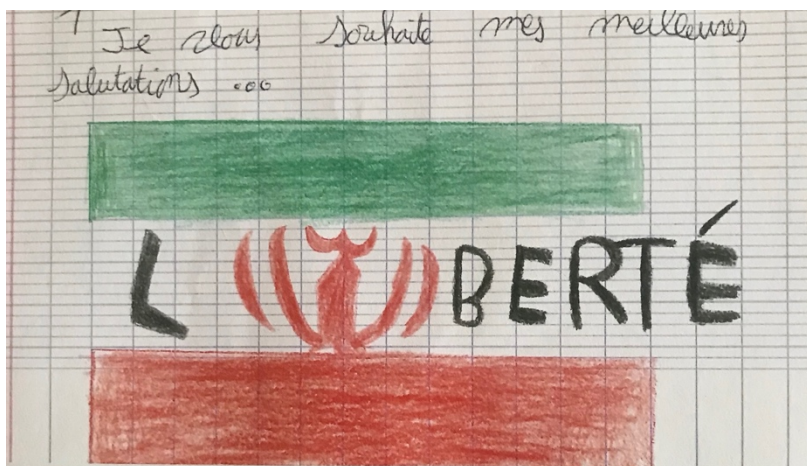 Je vous souhaite mes meilleures
salutations ...
LIBERTÉ